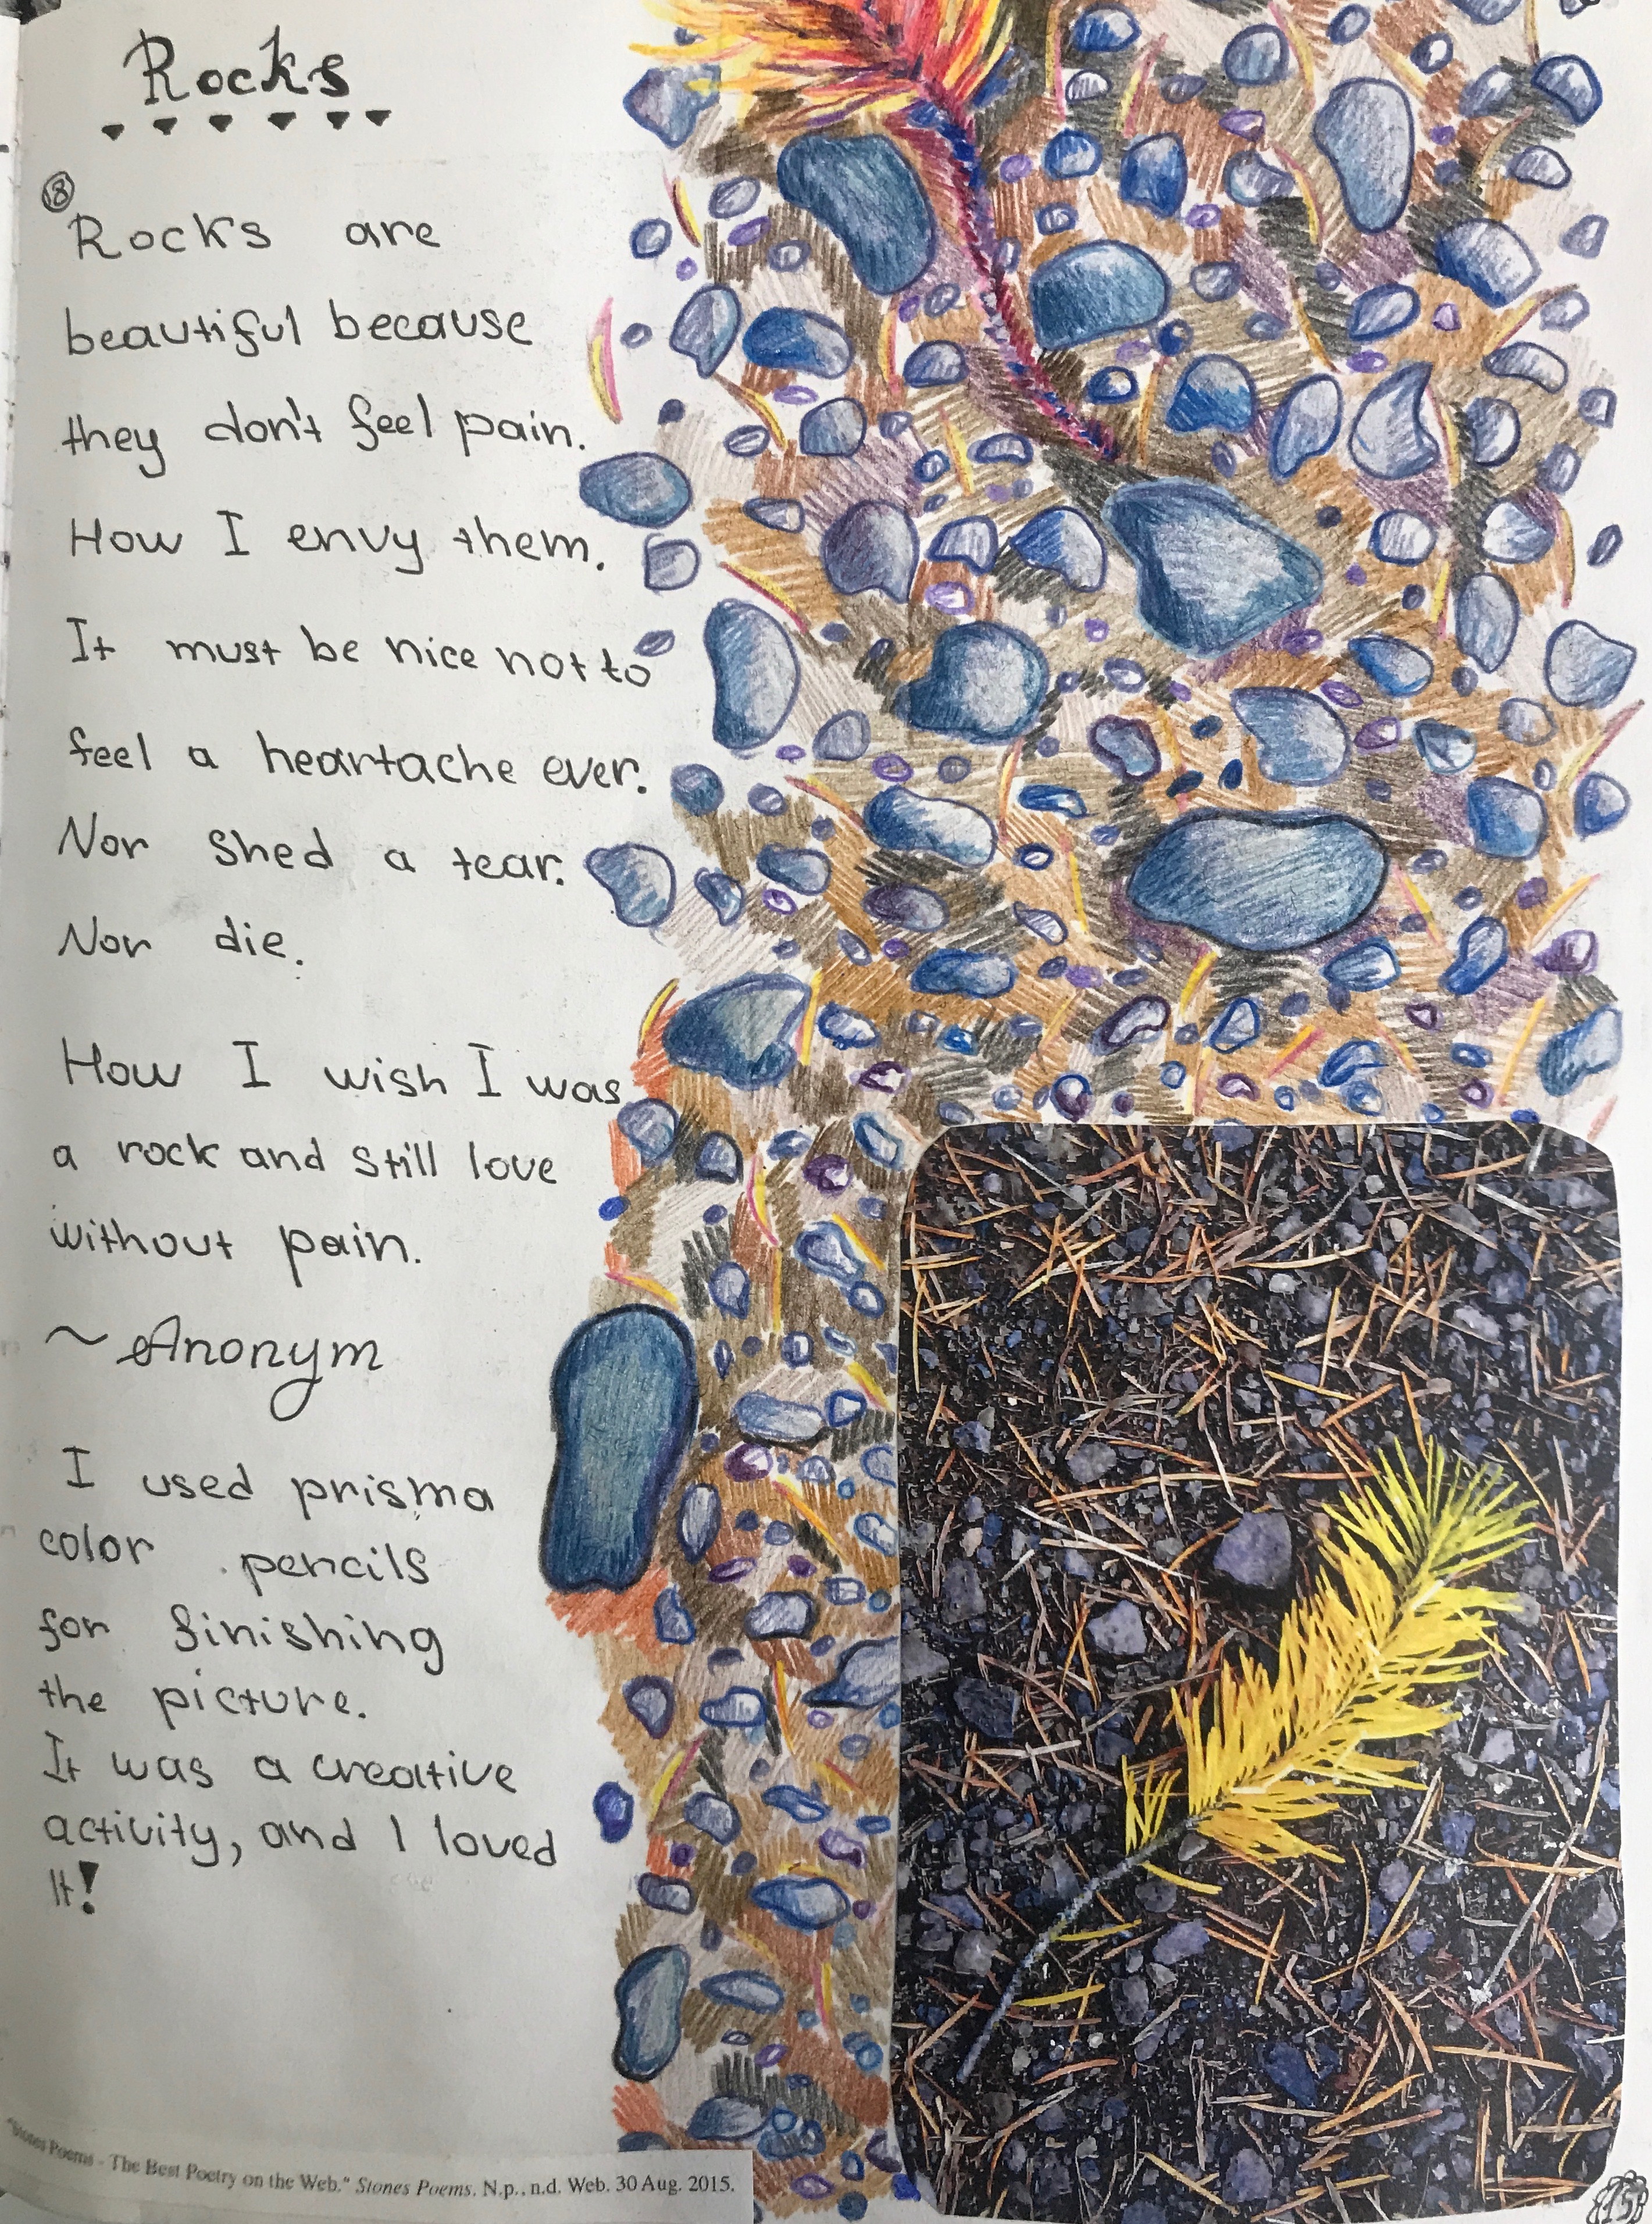 Rocks
18
Rocks are
beautiful because
they don't feel pain.
How I envy them.
It must be nice not to
feel a heartache ever.
Nor shed a tear.
Nor die.
How I wish I was
a rock and still love
without pain.
~ Anonym
I used prisma
color pencils
for finishing
the picture.
It was a creative
activity, and I loved
It!
"Stones Poems - The Best Poetry on the Web." Stones Poems. N.p., n.d. Web. 30 Aug. 2015.
15